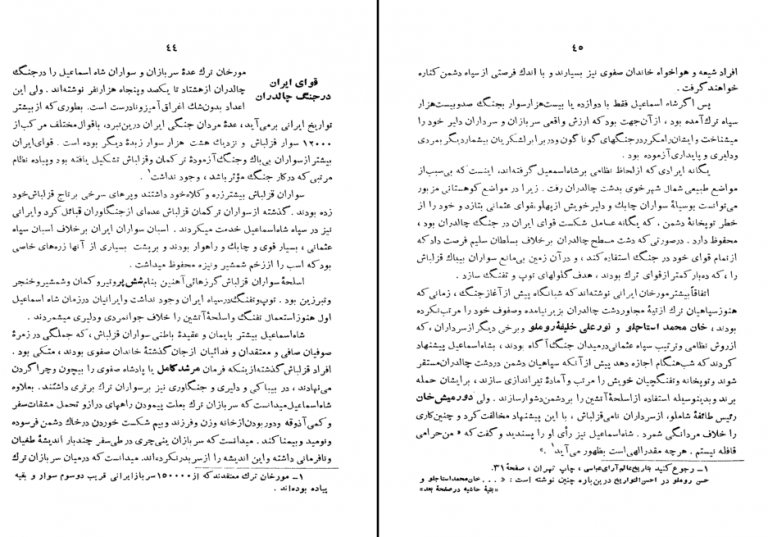 ٤٤
قوای ایران
در جنگ چالدران
مورخان ترک عدهٔ سربازان و سواران شاه اسماعیل را در جنگ
چالدران از هشتاد تا یکصد و پنجاه هزار نفر نوشته‌اند. ولی این
اعداد بدون شك اغراق آمیز و نادرست است. بطوری که از بیشتر
تواریخ ایرانی برمی‌آید، عدهٔ مردان جنگی ایران در این نبرد، باقوال مختلف مرکب از
۱۲۰۰۰ سوار قزلباش و نزدیك هشت هزار سوار زبدهٔ دیگر بوده است. قوای ایران
بیشتر از سواران بی‌باك و جنگ آزمودهٔ ترکمان و قزلباش تشکیل یافته بود و پیاده نظام
مرتبی که در کار جنگ مؤثر باشد، وجود نداشت۱.
سواران قزلباش بیشتر زره و کلاه‌خود داشتند و پرهای سرخی بر تاج قزلباش خود
زده بودند. گذشته از سواران ترکمان قزلباش عده‌ای از جنگاوران قبائل کرد و ایرانی
نیز در سپاه شاه اسماعیل خدمت میکردند. اسبان سواران ایران برخلاف اسبان سپاه
عثمانی، بسیار قوی و چابك و راهوار بودند و بر پشت بسیاری از آنها زره‌های خاصی
بود که اسب را از زخم شمشیر و نیزه محفوظ میداشت.
اسلحهٔ سواران قزلباش گرزهائی آهنین بنام شش پر و تیر و کمان و شمشیر و خنجر
و تبرزین بود. توپ و تفنگ در سپاه ایران وجود نداشت و ایرانیان در زمان شاه اسماعیل
اول هنوز استعمال تفنگ و اسلحهٔ آتشین را خلاف جوانمردی و دلیری میشمردند.
شاه اسماعیل بیشتر بایمان و عقیدهٔ باطنی سواران قزلباش، که جملگی در زمرهٔ
صوفیان صافی و معتقدان و فدائیان از جان گذشتهٔ خاندان صفوی بودند، متکی بود.
افراد قزلباش گذشته از اینکه فرمان مرشد کامل یا پادشاه صفوی را بیچون و چرا گردن
می‌نهادند، در بیباکی و دلیری و جنگاوری نیز بر سواران ترک برتری داشتند. بعلاوه
شاه اسماعیل میدانست که سربازان ترک بعلت پیمودن راههای دراز و تحمل مشقات سفر
و کمی آذوقه و دور بودن از خانه و زن و فرزند و بیم شکست خوردن در خاك دشمن فرسوده
و نومید و بیمناکند. میدانست که سربازان ینی‌چری در طی سفر چند بار اندیشهٔ طغیان
و نافرمانی داشته و این اندیشه را از سر بدر نکرده‌اند. میدانست که در میان سربازان ترک
۱ – مورخان ترک معتقدند که از ۱۵۰۰۰۰ سرباز ایرانی قریب دو سوم سوار و بقیه
پیاده بوده‌اند.
٤٥
افراد شیعه و هواخواه خاندان صفوی نیز بسیارند و با اندک فرصتی از سپاه دشمن کناره
خواهند گرفت.
پس اگر شاه اسماعیل فقط با دوازده یا بیست هزار سوار بجنگ صد و بیست هزار
سپاه ترک آمده بود، از آن جهت بود که ارزش واقعی سربازان و سرداران دلیر خود را
میشناخت و ایشان را مکرر در جنگهای گوناگون و در برابر لشکریان بیشمار دیگر بمردی
و دلیری و پایداری آزموده بود.
یگانه ایرادی که از لحاظ نظامی بر شاه اسماعیل گرفته‌اند، اینست که بی‌سبب از
مواضع طبیعی شمال شهر خوی بدشت چالدران رفت. زیرا در مواضع کوهستانی مزبور
می‌توانست بوسیلهٔ سواران چابك و دلیر خویش از پهلو بقوای عثمانی بتازد و خود را از
خطر توپخانهٔ دشمن، که یگانه عامل شکست قوای ایران در جنگ چالدران بود،
محفوظ دارد. در صورتی که دشت مسطح چالدران برخلاف بسلطان سلیم فرصت داد که
از تمام قوای خود در جنگ استفاده کند، و در آن زمین بی‌مانع سواران بیباك قزلباش
را، که ده بار کمتر از قوای ترک بودند، هدف گلوله‌های توپ و تفنگ سازد.
اتفاقاً بیشتر مورخان ایرانی نوشته‌اند که شبانگاه پیش از آغاز جنگ، زمانی که
هنوز سپاهیان ترک از تپهٔ مجاور دشت چالدران بزیر نیامده و صفوف خود را مرتب نکرده
بودند، خان محمد استاجلو و نورعلی خلیفهٔ روملو و برخی دیگر از سرداران، که
از روش نظامی و ترتیب سپاه عثمانی در میدان جنگ آگاه بودند، بشاه اسماعیل پیشنهاد
کردند که شب هنگام اجازه دهد پیش از آنکه سپاهیان دشمن در دشت چالدران مستقر
شوند و توپخانه و تفنگچیان خویش را مرتب و آمادهٔ تیراندازی سازند، بر ایشان حمله
برند و بدینوسیله استفاده از اسلحهٔ آتشین را بر دشمن دشوار سازند. ولی دورمیش خان
رئیس طائفهٔ شاملو، از سرداران نامی قزلباش، با این پیشنهاد مخالفت کرد و چنین کاری
را خلاف مردانگی شمرد. شاه اسماعیل نیز رأی او را پسندید و گفت که « من حرامی
قافله نیستم. هر چه مقدر الهی است بظهور می‌آید۱. »
۱ – رجوع کنید بتاریخ عالم‌آرای عباسی، چاپ تهران، صفحهٔ ۳۱.
حسن روملو در احسن‌التواریخ در این باره چنین نوشته است: « ... خان محمد استاجلو و
«بقیهٔ حاشیه در صفحهٔ بعد»